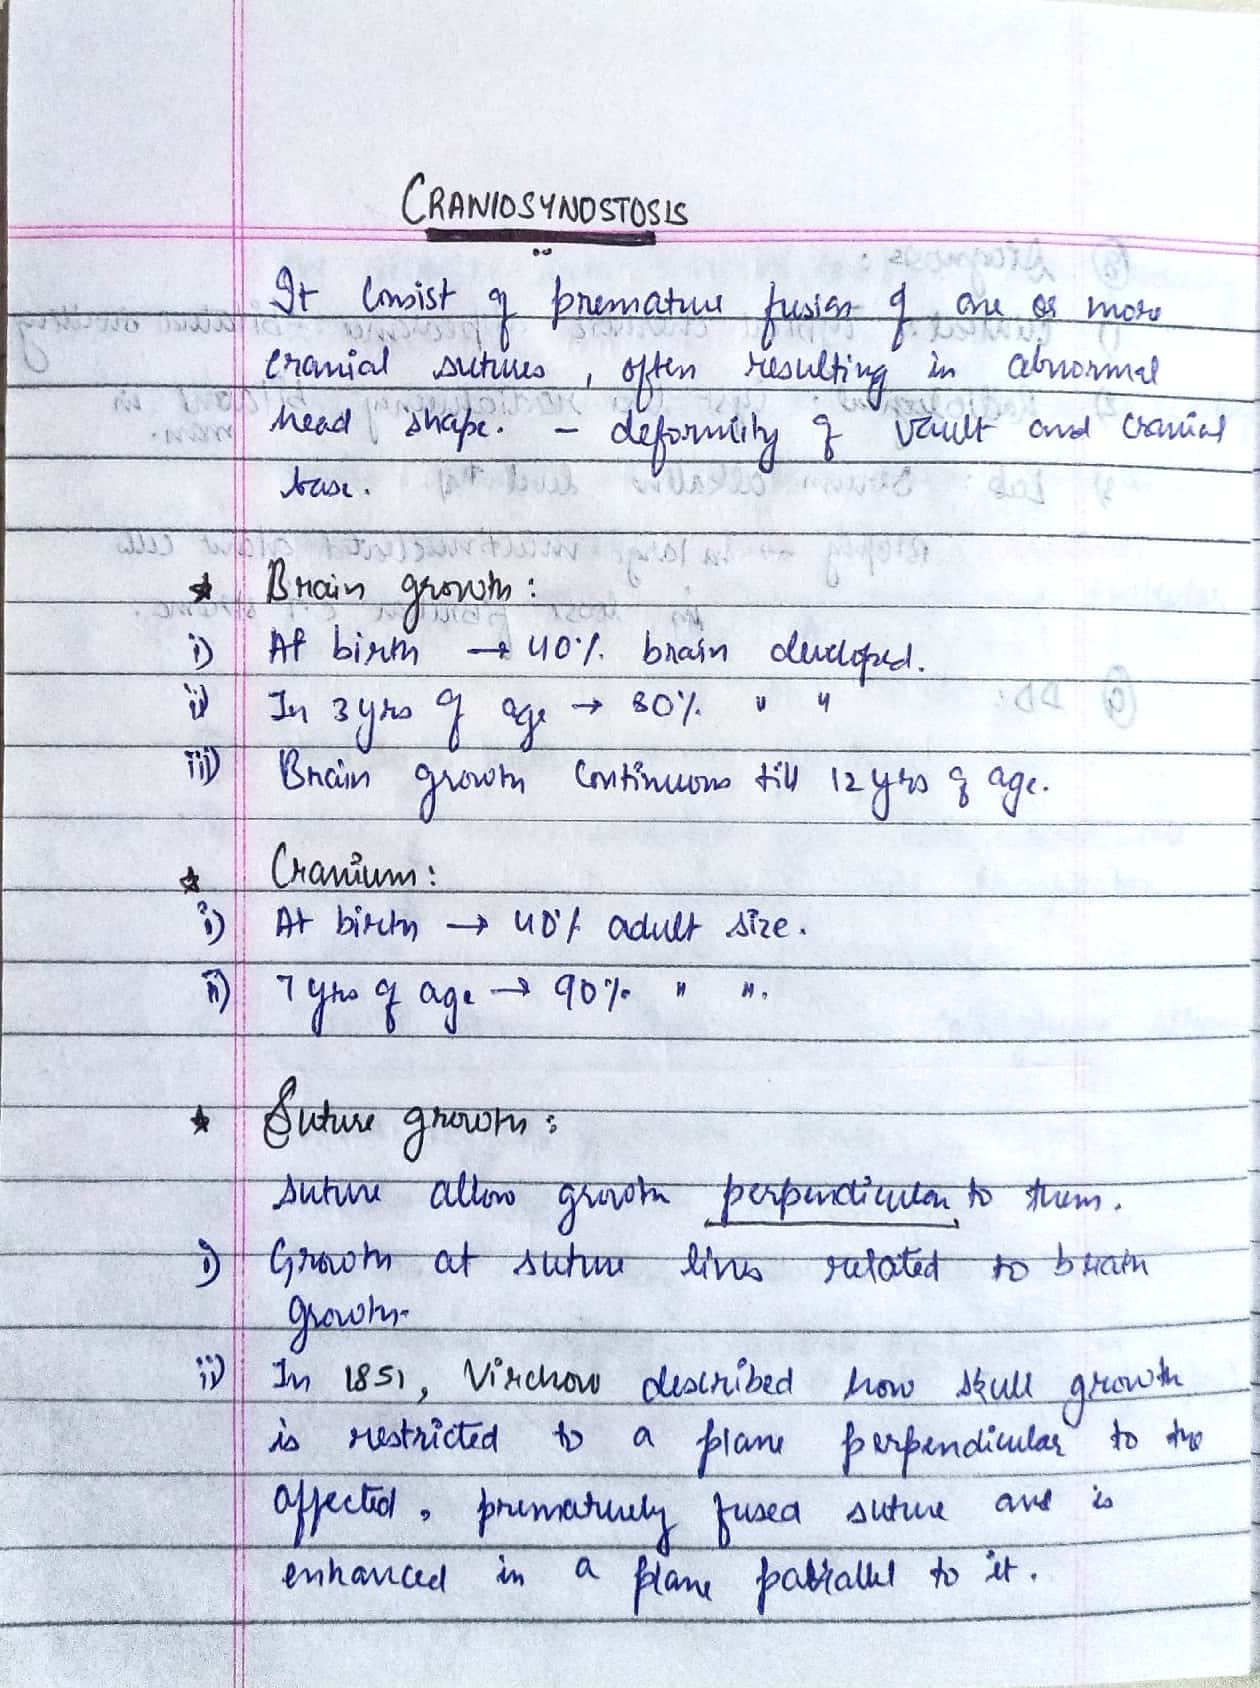 CRANIOSYNOSTOSIS
It consist of premature fusion of one or more
cranial sutures, often resulting in abnormal
head shape. - deformity of vault and cranial
base.
★ Brain growth:
i) At birth → 40% brain developed.
ii) In 3 yrs of age → 80% " "
iii) Brain growth continuous till 12 yrs of age.
☆ Cranium:
i) At birth → 40% adult size.
ii) 7 yrs of age → 90% " ".
★ Suture growth:
suture allow growth perpendicular to them.
i) Growth at suture lines related to brain
growth.
ii) In 1851, Virchow described how skull growth
is restricted to a plane perpendicular to the
affected, prematurely fused suture and is
enhanced in a plane parallel to it.